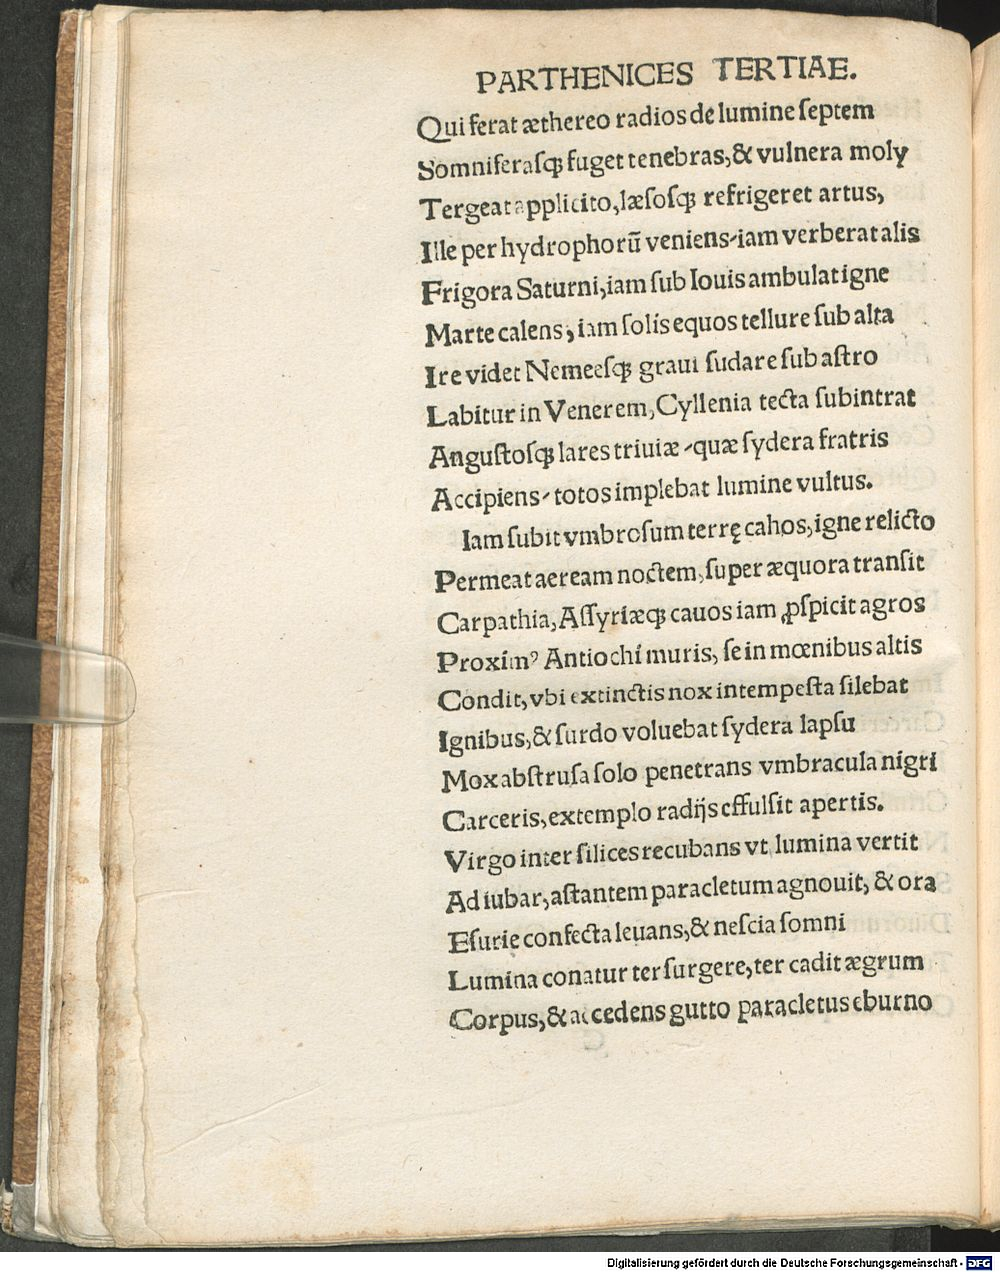 PARTHENICES TERTIAE.
Qui ferat æthereo radios de lumine ſeptem
Somniferaſqꝫ fuget tenebras,& vulnera moly
Tergeat applicito,læſoſqꝫ refrigeret artus,
Ille per hydrophorū veniens-iam verberat alis
Frigora Saturni,iam ſub Iouis ambulat igne
Marte calens, iam ſolis equos tellure ſub alta
Ire videt Nemeeſqꝫ graui ſudare ſub aſtro
Labitur in Venerem,Cyllenia tecta ſubintrat
Anguſtoſqꝫ lares triuiæ -quæ ſydera fratris
Accipiens- totos implebat lumine vultus.
Iam ſubit vmbroſum terrę cahos,igne relicto
Permeat aeream noctem,ſuper æquora tranſit
Carpathia, Aſſyriæqꝫ cauos iam ꝓſpicit agros
Proximꝰ Antiochi muris, ſe in mœnibus altis
Condit,vbi extinctis nox intempeſta ſilebat
Ignibus,& ſurdo voluebat ſydera lapſu
Mox abſtruſa ſolo penetrans vmbracula nigri
Carceris,extemplo radijs effulſit apertis.
Virgo inter ſilices recubans vt lumina vertit
Ad iubar,aſtantem paracletum agnouit, & ora
Eſurie confecta leuans,& neſcia ſomni
Lumina conatur ter ſurgere,ter cadit ægrum
Corpus,& accedens gutto paracletus eburno
Digitalisierung gefördert durch die Deutsche Forschungsgemeinschaft - DFG